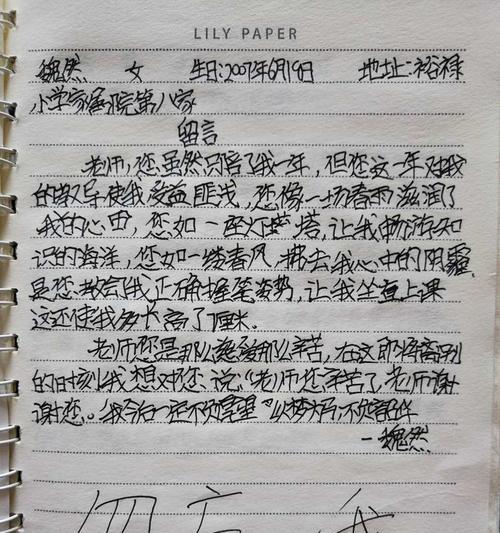 LILY PAPER
魏然 女 生日:2007年6月19日 地址:裕禄
小学家属院第八家
留言
老师,您虽然只陪了我一年,但您这一年对我
的教导使我受益匪浅,您像一场春雨滋润了
我的心田,您如一座灯塔,让我畅游知
识的海洋,您如一缕春风,拂去我心中的阴霾,
是您教会我正确握笔姿势,让我坐直上课
这还使我多长高了1厘米。
老师您是那么慈爱那么辛苦,在这即将离别
的时刻我想对您说:“老师您辛苦了,老师谢
谢您。我今后一定不负 ”以梦为马,不负韶华
—魏然
勿忘我